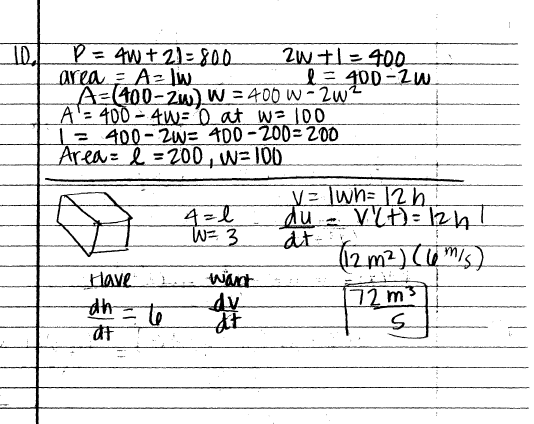 10. P = 4w + 2l = 800 2w + l = 400
area = A = lw l = 400 - 2w
A = (400 - 2w) w = 400 w - 2w²
A' = 400 - 4w = 0 at w = 100
l = 400 - 2w = 400 - 200 = 200
Area = l = 200, w = 100
v = lwh = 12 h
4 = l
w = 3
du/dt = V'(t) = 12 h'
(12 m²) (6 m/s)
Have want
dh/dt = 6 dv/dt
72 m³/s